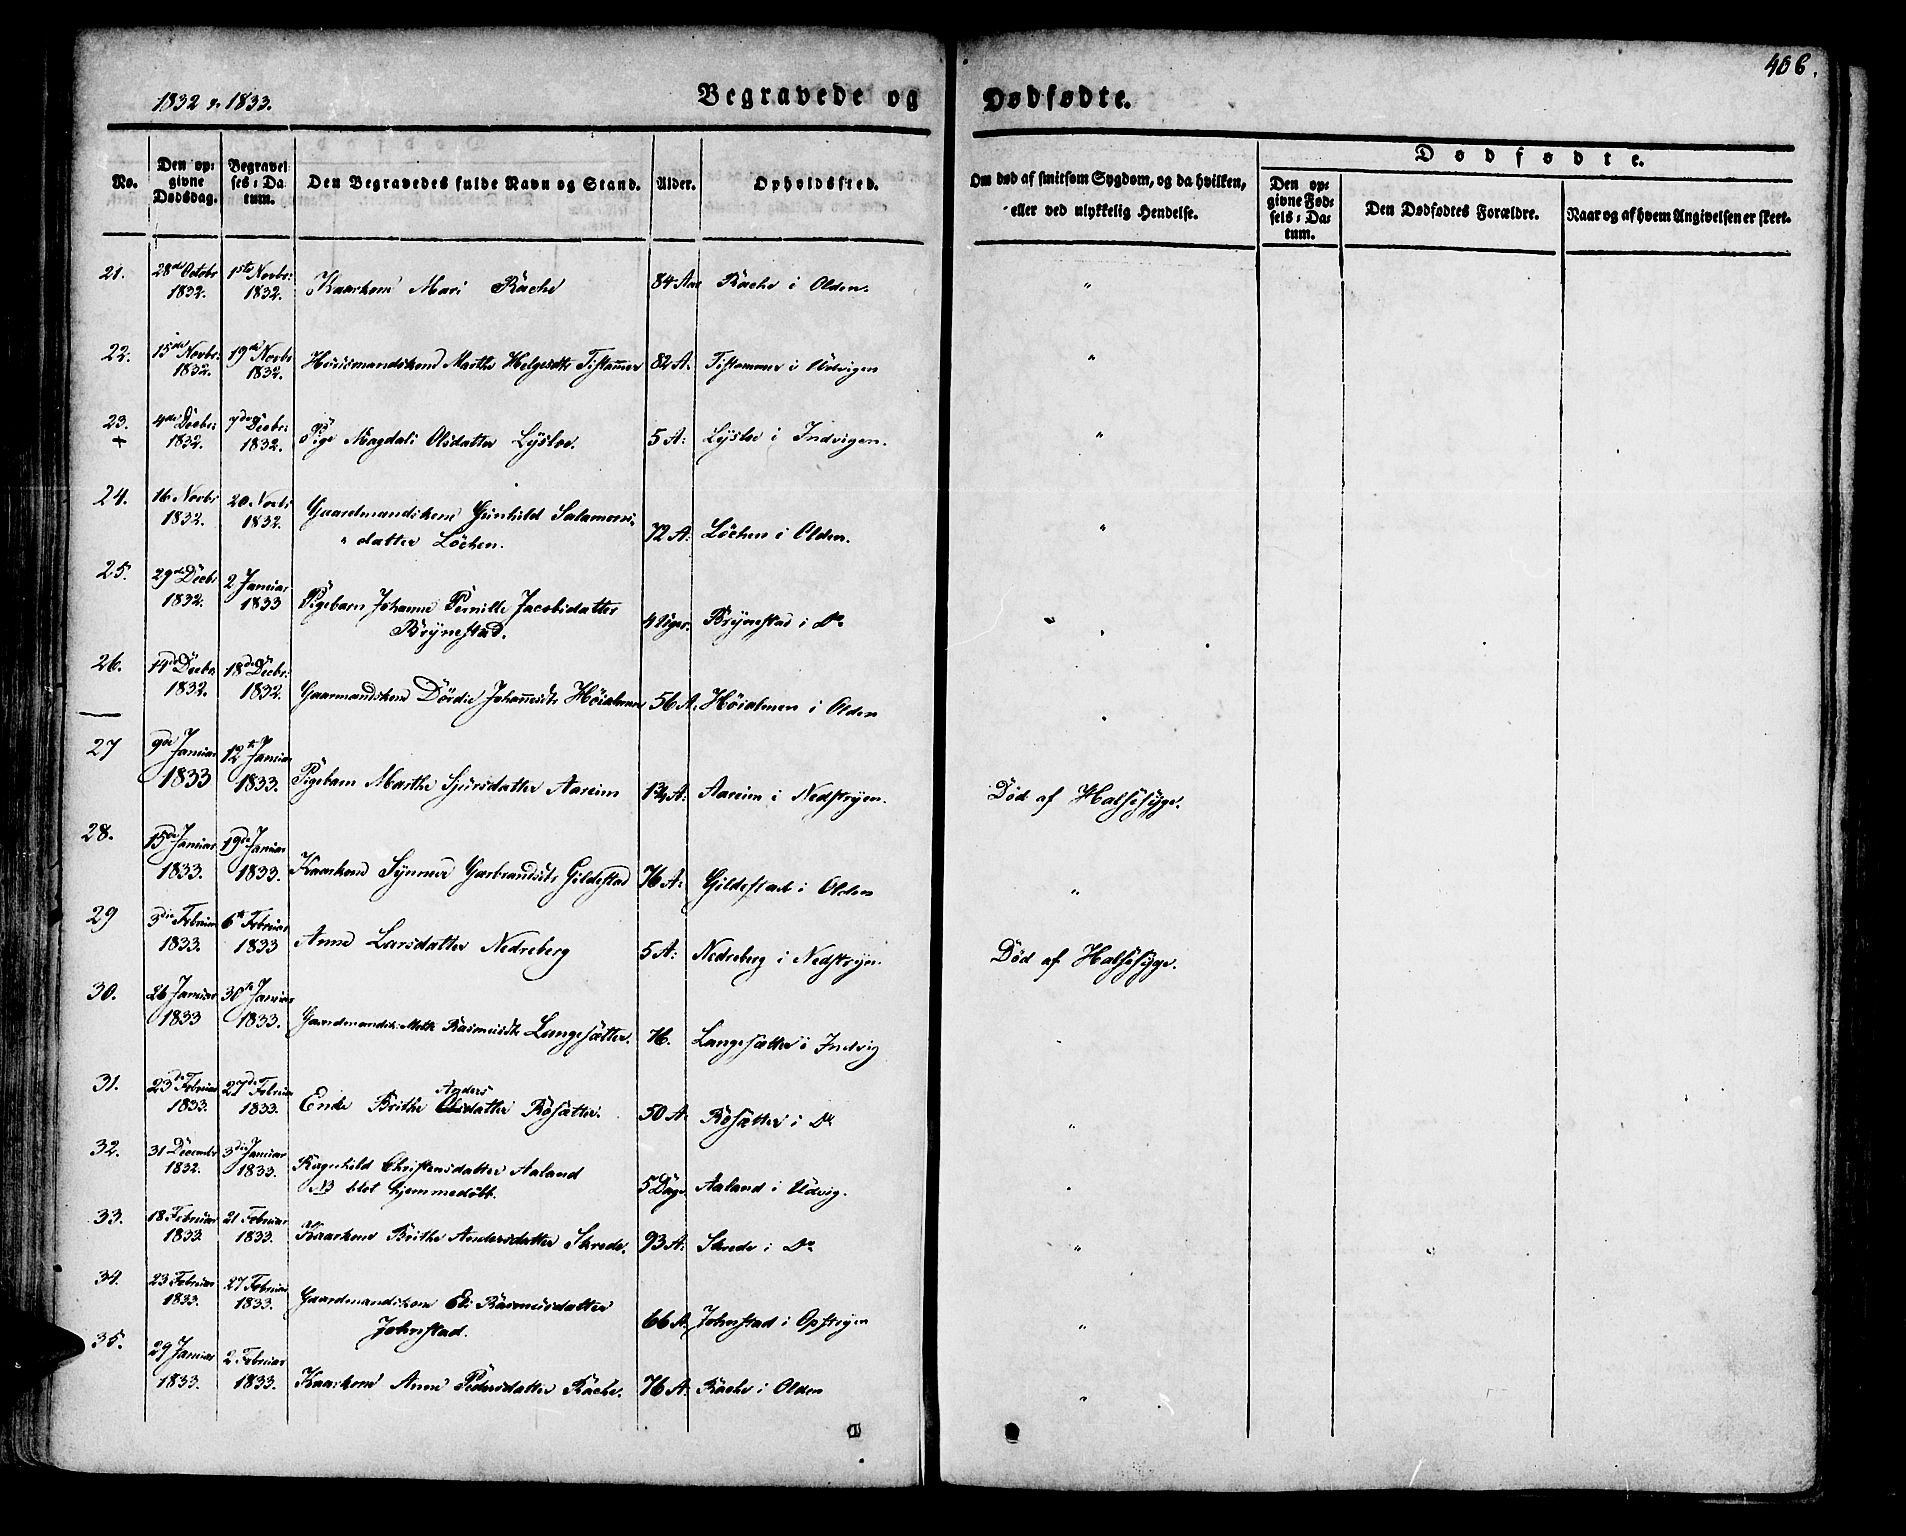 406.
1832 & 1833. Begravede og Dødfødte.
No. Den op: givne Dødsdag. Begravel ses: Da tum. Den Begravedes fulde Navn og Stand. Alder. Opholdssted. Om død af smitsom Sygdom, og da hvilken, eller ved ulykkelig Hendelse. Dødfødte. Den op: givne Fød: sels: Da: tum. Den Dødfødtes Forældre. Naar og af hvem Angivelsen er skeet.
21. 28de Octobr 1832. 1ste Novbr: 1832. Kaarkone Mari Rache 84 Aar Rache i Olden. "
22. 15de Novbr: 1832. 19de Novbr 1832. Huusmandskone Marthe Helgesdtr Tistamer 82 A. Tistammer i Udvigen "
23. + 4de Decbr: 1832. 7de Decbr: 1832. Pige Magdali Olsdatter Lysloe. 5 A: Lysloe i Indvigen. "
24. 16 Novbr 1832. 20. Novbr 1832. Gaardmandskone Gunhild Salamons: datter Løchen. 72 A: Løchen i Olden. "
25. 29de Decbr 1832. 2 Januar 1833 Pigebarn Johanne Pernille Jacobsdatter Brynestad. 4 Uger. Brynestad i Do "
26. 14de Decbr: 1832. 18de Decbr: 1832. Gaarmandskone Dørdie Johannesdtr Høialmen 56 A. Høialmen i Olden "
27 9de Januar 1833 12te Januar 1833. Pigebarn Marthe Sjursdatter Aareim 1¾ A: Aareim i Nedstryen. Død af Halssyge.
28. 15de Januar 1833. 19de Januar 1833. Kaarkone Synneve Garbrandsdtr Gildestad 76 A: Gildestad i Olden "
29 3die Februar 1833. 6te Februar 1833 Anne Larsdatter Nedreberg 5 A: Nedreberg i Nedstryn. Død af Halssyge.
30. 26 Januar 1833 30te Januar 1833. Gaardmandsk: Mette Rasmusdtr Langesætter. 76. Langesætter i Indvig
31. 23de Februar 1833. 27de Februar 1833. Enke Brithe Anders Olsdatter Røsætter. 50 A Røsætter i Do "
32. 31 Decembr 1832. 3die Januar 1833. Ragnhild Christensdatter Aaland NB blot hjemmedøbt. 5 Dage Aaland i Udvig.
33. 18 Februar 1833 21 Februar 1833. Kaarkone Brithe Andersdatter Skrede. 93 A: Skrede i Do "
34. 23 Februar 1833. 27 Februar 1833. Gaardmandskone Eli Rasmusdatter Johnstad. 66 A Johnstad i Opstryen "
35. 29 Januar 1833. 2 Februar 1833. Kaarkone Anne Pedersdatter Rache. 76 A: Rache i Olden "